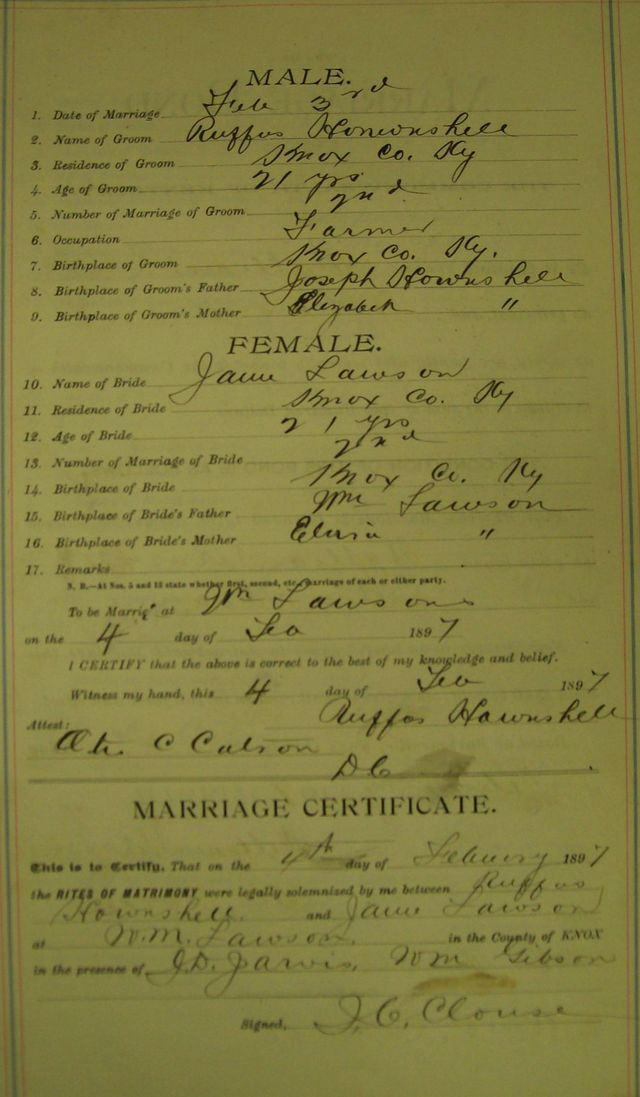 MALE.
1. Date of Marriage Feb 3rd
2. Name of Groom Ruffus Honwnshell
3. Residence of Groom Knox Co. Ky
4. Age of Groom 21 yrs
5. Number of Marriage of Groom 2nd
6. Occupation Farmer
7. Birthplace of Groom Knox Co. Ky.
8. Birthplace of Groom's Father Joseph Hownshell
9. Birthplace of Groom's Mother Elizabeth "
FEMALE.
10. Name of Bride Lawson
11. Residence of Bride Knox Co. Ky
12. Age of Bride 21 yrs
13. Number of Marriage of Bride 2nd
14. Birthplace of Bride Knox Co. Ky
15. Birthplace of Bride's Father Wm Lawson
16. Birthplace of Bride's Mother "
17. Remarks
N. B.—At Nos. 5 and 13 state whether first, second, etc., marriage of each or either party.
To be Married at Wm Lawsons
on the 4 day of Feb 1897
I CERTIFY that the above is correct to the best of my knowledge and belief.
Witness my hand, this 4 day of Feb 1897
Ruffus Hownshell
Attest:
C Catson
D C
MARRIAGE CERTIFICATE.
This is to Certify, That on the 4th day of Febuary 1897
the RITES OF MATRIMONY were legally solemnized by me between Ruffus
Hownshell. and Lawson
at W.M. Lawson. in the County of KNOX
in the presence of J.D. Jarvis, Wm Gibson
Signed, J. C. Clouse